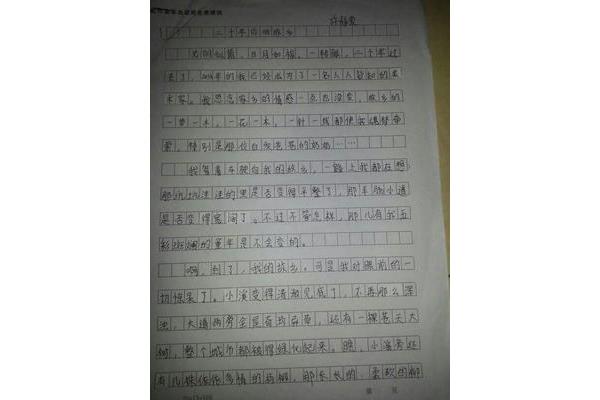 二十年后的故乡
光阴似箭，日月如梭。一转眼，二十年过
去了，的我已经成为了一名人人皆知的美
术家。我思念家乡的情感一点也没变，故乡的
一草一木，一花一木，一针一线都使我魂梦牵
萦，特别是那位白发苍苍的奶奶……
我驾着车驶向我的故乡，一路上我都在想
那坑坑洼洼的是否变得平整了，那羊肠小道
是否变得宽阔了。不过不管怎样，那儿有我五
彩斑斓的童年是不会变的。
啊，到了，我的故乡。可是我对眼前的一
切惊呆了。小变得清澈见底了，不再那么深
浊，大道两旁全是，还有一棵苍天大
树，整个城市都被绿化起来。瞧，小旁还
有几株依依多情的杨柳，那长长的，柔软的柳
第 页